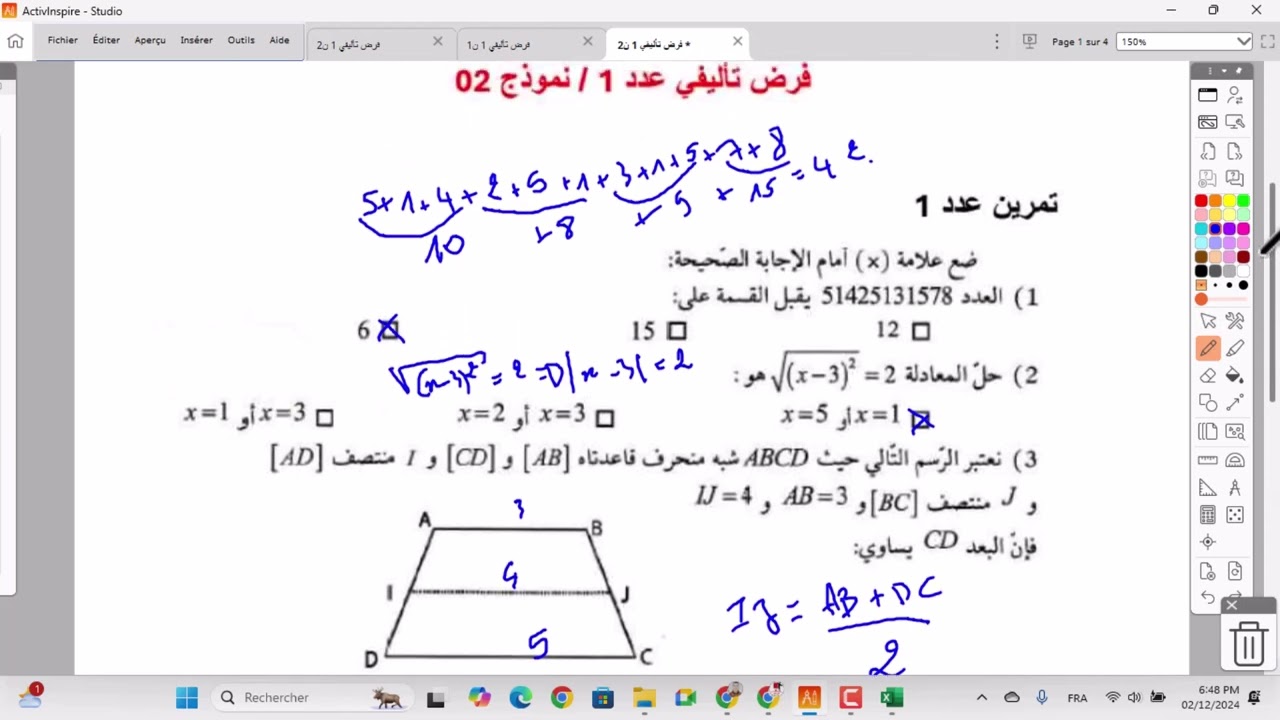 ActivInspire - Studio
Fichier Éditer Aperçu Insérer Outils Aide
فرض تأليفي 1 ن2
فرض تأليفي 1 ن1
فرض تأليفي 1 ن2 *
Page 1 sur 4
150%
فرض تأليفي عدد 1 / نموذج 02
5+1+4+2+5+1+3+1+5+7+8
10 +8 +9 +15 = 42
تمرين عدد 1
ضع علامة (x) أمام الإجابة الصّحيحة:
1) العدد 51425131578 يقبل القسمة على:
12 □ 15 □ 6 □
2) حلّ المعادلة √(x−3)² = 2 هو:
√(x-3)² = 2 => |x-3| = 2
□ x=1 أو x=5 □ x=3 أو x=2 □ x=3 أو x=1
3) نعتبر الرّسم التّالي حيث ABCD شبه منحرف قاعدتاه [AB] و [CD] و I منتصف [AD]
و J منتصف [BC] و AB=3 و IJ=4
فإنّ البعد CD يساوي:
A 3 B
I 4 J
D 5 C
IJ = AB + DC
2
1
Rechercher
FRA
6:48 PM
02/12/2024